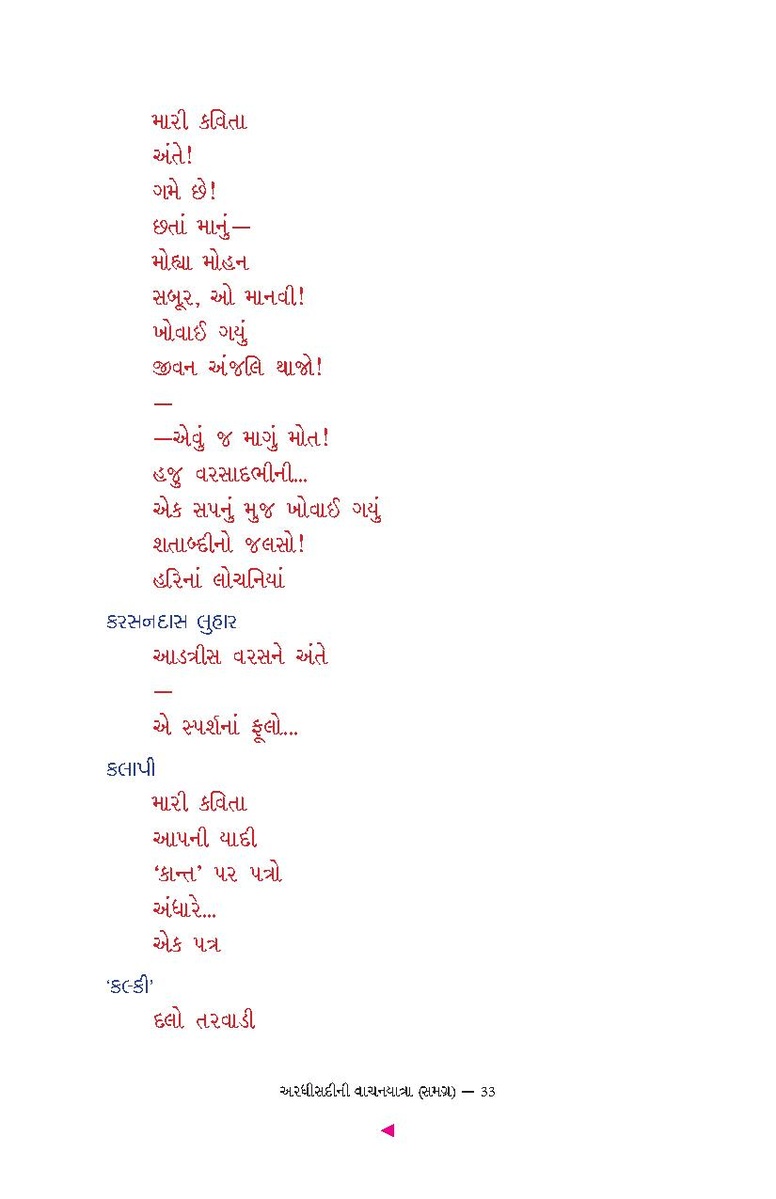 મારી કવિતા
અંતે!
ગમે છે!
છતાં માનું—
મોહ્યા મોહન
સબૂર, ઓ માનવી!
ખોવાઈ ગયું
જીવન અંજલિ થાજો!
—
—એવું જ માગું મોત!
હજુ વરસાદભીની...
એક સપનું મુજ ખોવાઈ ગયું
શતાબ્દીનો જલસો!
હરિનાં લોચનિયાં
કરસનદાસ લુહાર
આડત્રીસ વરસને અંતે
—
એ સ્પર્શનાં ફૂલો...
કલાપી
મારી કવિતા
આપની યાદી
‘કાન્ત’ પર પત્રો
અંધારે...
એક પત્ર
‘કલ્કી’
દલો તરવાડી
અરધીસદીની વાચનયાત્રા (સમગ્ર) — 33